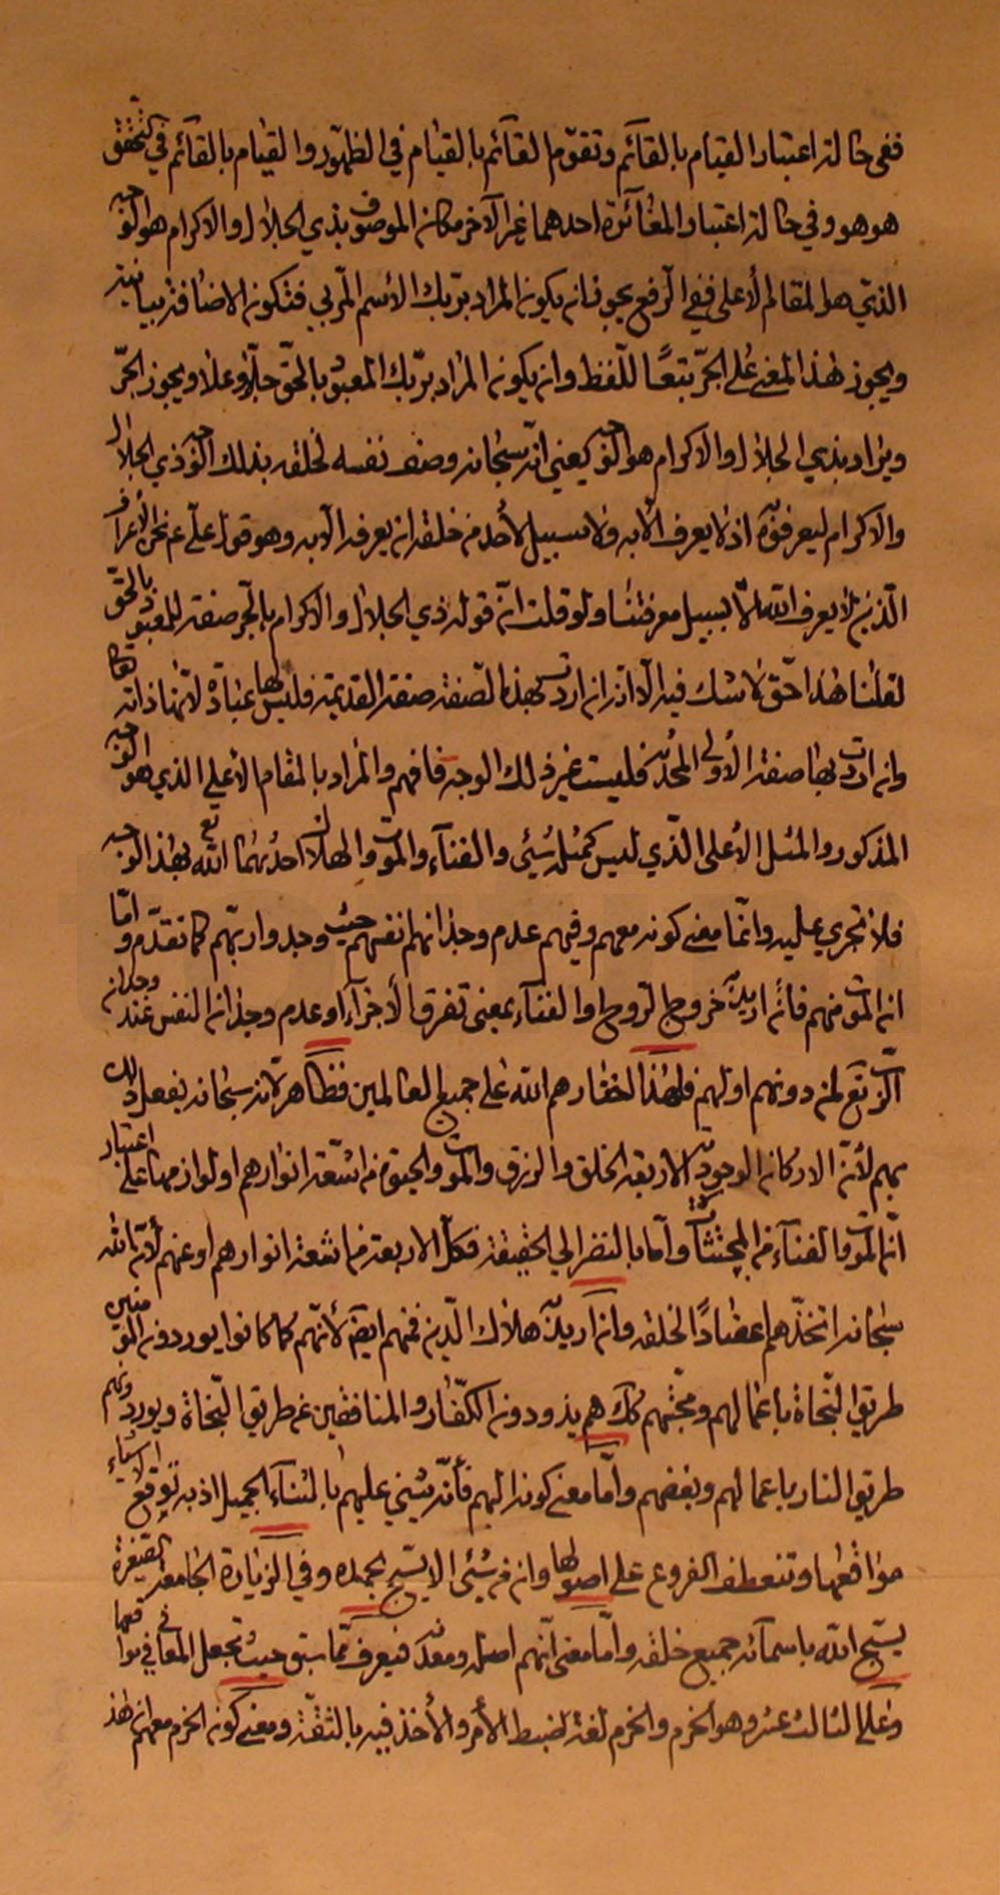 ففى حالة اعتبار القيام بالقآئم وتقوّم القآئم بالقيام في الظهور والقيام بالقآئم في التحقق
هو هو وفي حالة اعتبار المغآئرة احدهما غير الآخر فكان الموصوف بذي الجلال والاكرام هو الوجه
الذي هو المقام الأعلى ففي الرفع يجوز ان يكون المراد بربّك الأسم المربي فتكون الاضافة بيانية
ويجوز هذا المعنى على الجرّ تبعًا للّفظ وان يكون المراد بربّك المعبود بالحقّ جلّ وعلا ويجوز الجرّ
ويراد بذي الجلال والاكرام هو الوجه يعني انّه سبحانه وصف نفسه لخلقه بذلك الوجه ذي الجلال
والاكرام ليعرفوه اذ لا يعرف الّا به ولا سبيل لأحد من خلقه ان يعرفه الّا به وهو قول علي ع نحن الأعراف
الّذين لا يعرف الله الّا بسبيل معرفتنا ولو قلت انّ قوله ذي الجلال والاكرام بالجرّ صفة للمعبود بالحقّ
لقلنا هذا حقّ لا شك فيه الّا انّه ان اردت بهذا الصّفة صفته القديمة فليس لها عبادة لأنّها ذاته تعا
وان اردت بها صفته الأولى المحدثة فليست غير ذلك الوجه فافهم والمراد بالمقام الأعلى الذي هو الوجه
المذكور والمثل الأعلى الّذي ليس كمثله شئ والفنآء والموت والهلاك احدثهما الله تع بهذا الوجه
فلا تجري عليه وانّما معنى كونه معهم وفيهم عدم وجدانهم انفسهم حيث وجدوا ربّهم كما تقدّم وامّا
انه الموت منهم فأنه اريد به خروج الروح او الفنآء بمعنى تفرق الأجزآء او عدم وجدان النفس عند وجدان
الربّ تع لمن دونهم او لهم فلهذا اختارهم الله على جميع العالمين فظاهر لانّه سبحانه يفعل ذلك
بهم لأنّ الاركان الوجودية الاربعة الخلق والرزق والموت والحيوة من اشعّة انوارهم او لوازمها على اعتبار
انّ الموت والفنآء من المجتثات وامّا بالنظر الى الحقيقة فكلّ الاربعة من اشعة انوارهم او عنهم لأنّ الله
سبحانه اتخذهم اعضادًا لخلقه وان اريد به هلاك الدّين فمنهم ايضًا لأنّهم كما كانوا يوردون المؤمنين
طريق النّجاة باعمالهم ومحبّتهم كك هم يذودون الكفّار والمنافقين عن طريق النّجاة ويوردونهم
طريق النار باعمالهم وبغضهم وامّا معنى كونه اليهم فأنّه يثني عليهم بالثنآء الجميل اذ به توقع الاشياء
مواقعها وتنعطف الفروع على اصولها وان من شئ الا يسبّح بحمده وفي الزيارة الجامعة الصّغيرة
يسبّح الله باسمآئه جميع خلقه وامّا معنى انّهم اصله ومعدنه فيعرف ممّا سبق حيث تجعل المعاني في مواقعها
وعلى الثالث عشر وهو الحزم والحزم لغة ضبط الأمر والأخذ فيه بالثقة ومعنى كون الحزم معهم ان هذ